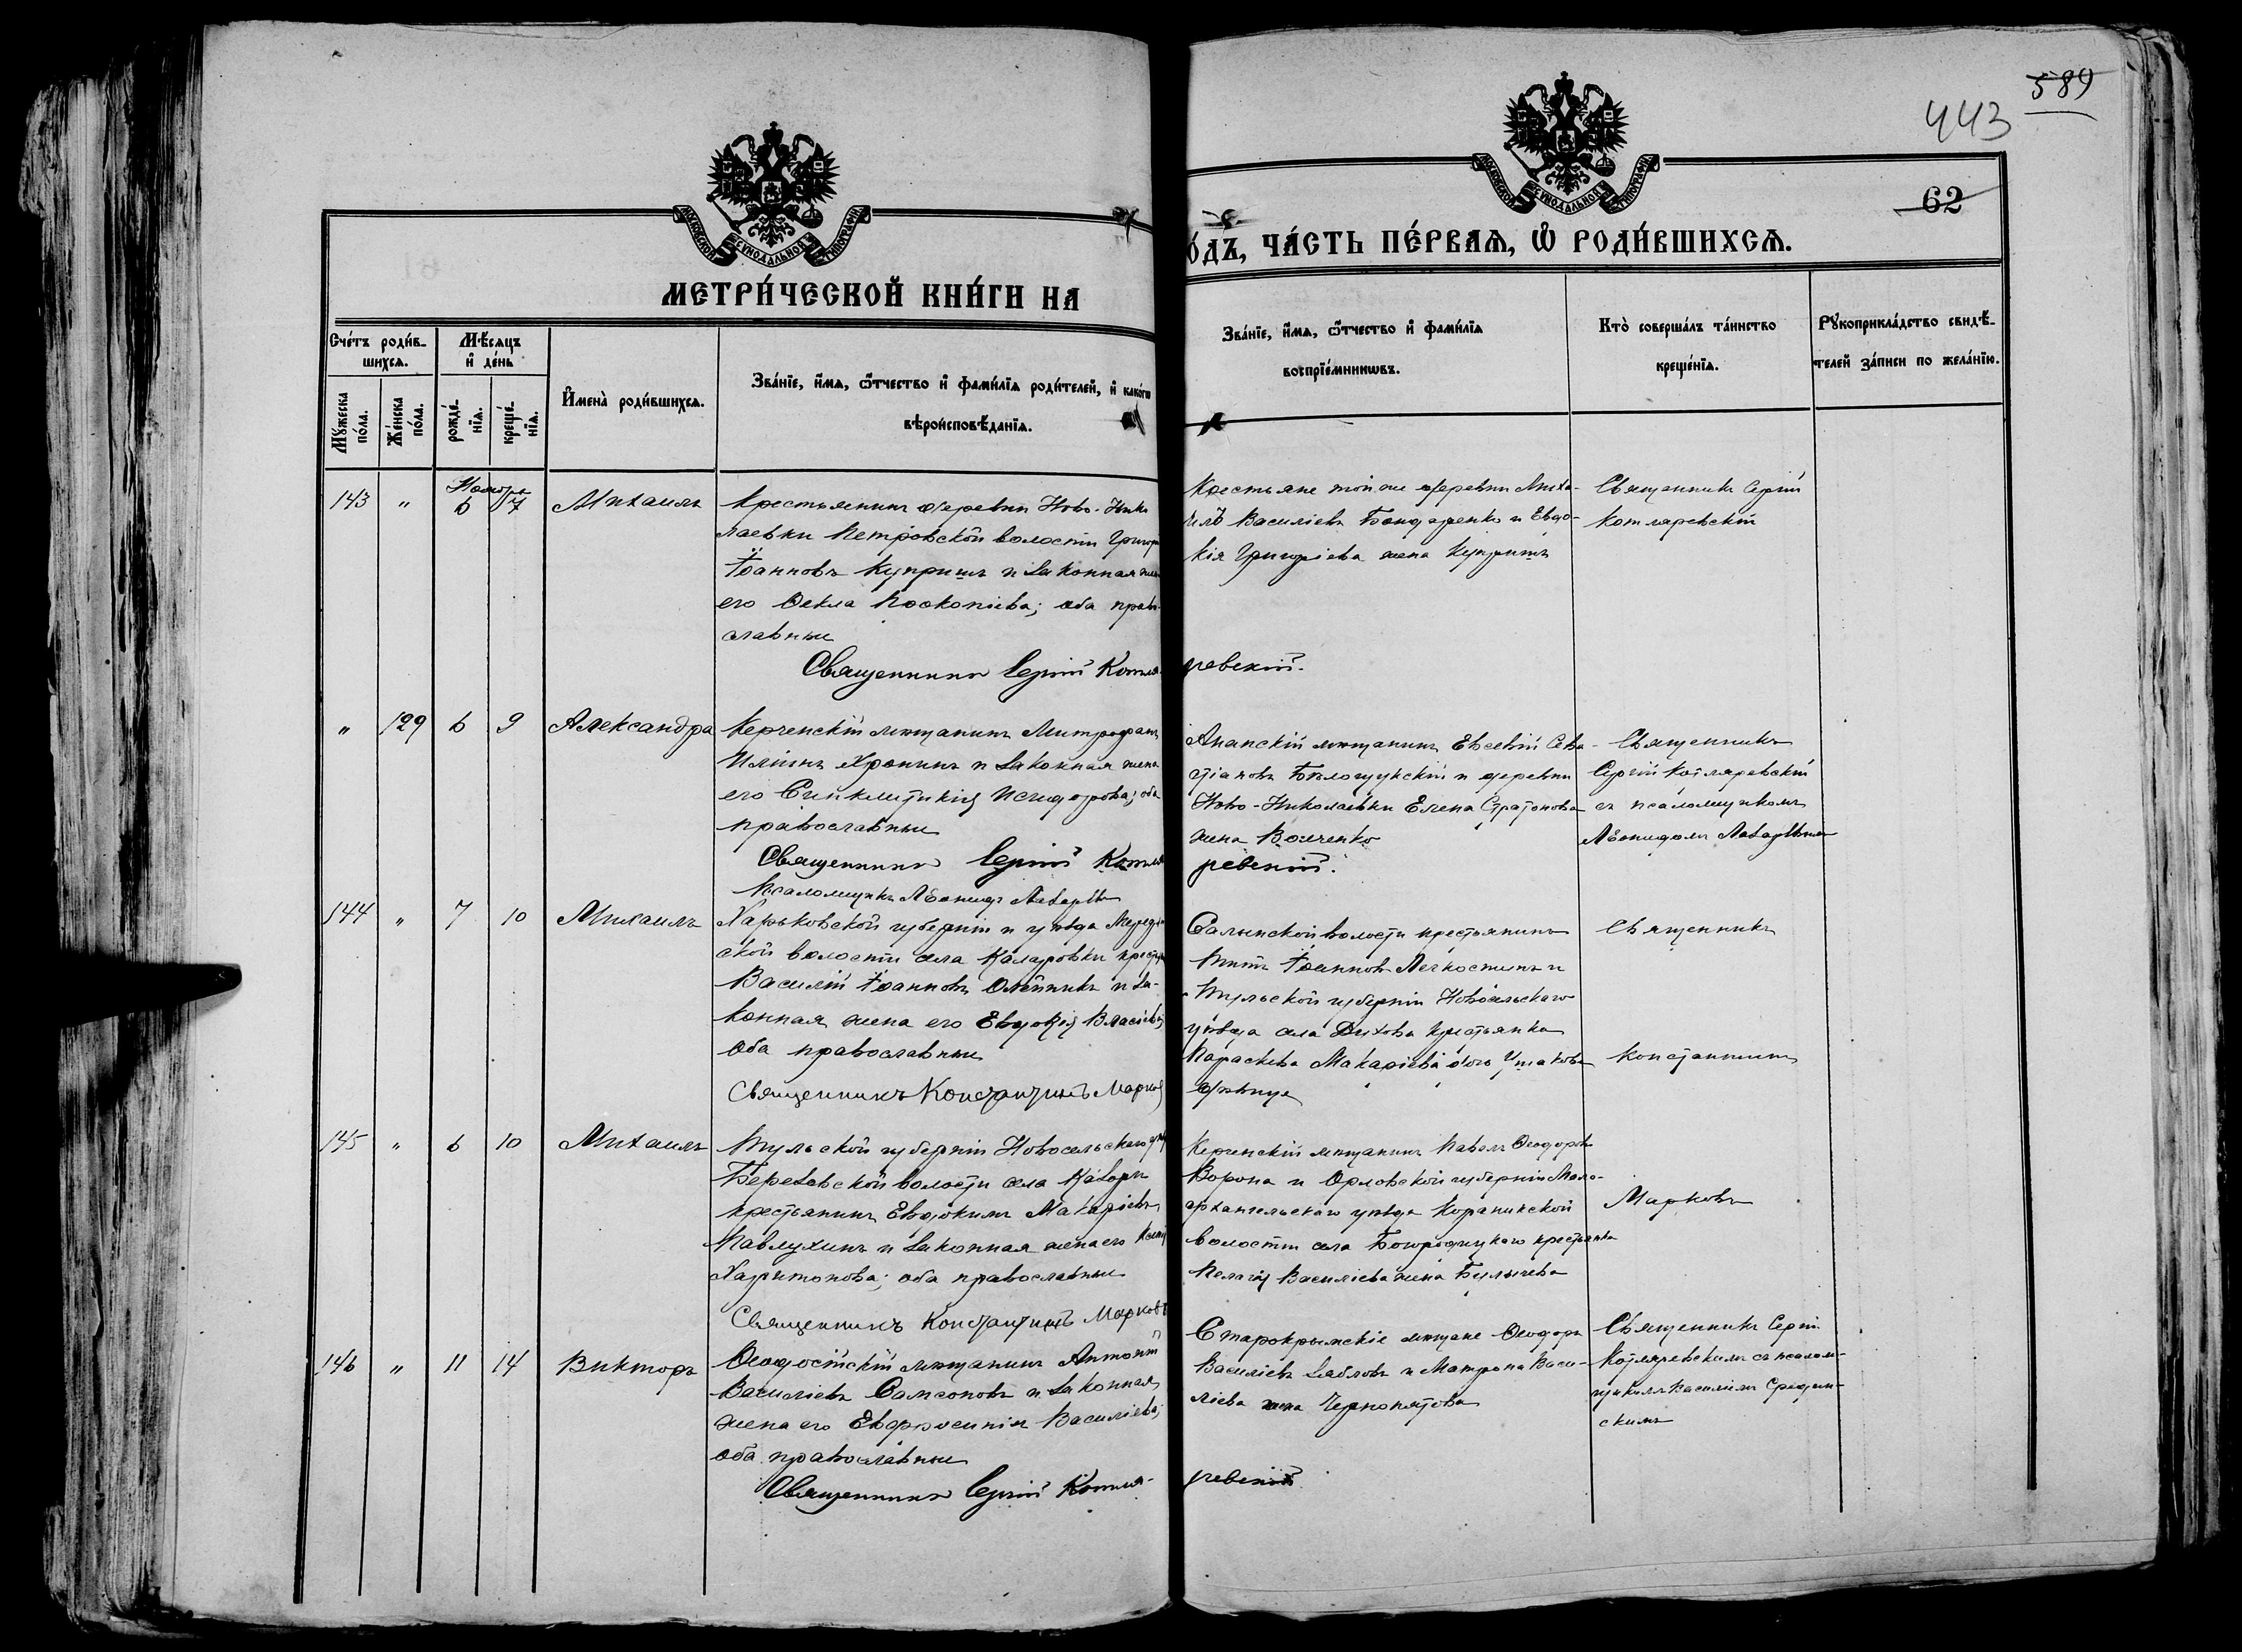 589
443
62
МОСКОВСКОЙ СУНОДАЛЬНОЙ ТИПОГРАФІИ
МОСКОВСКОЙ СУНОДАЛЬНОЙ ТИПОГРАФІИ
МЕТРИ́ЧЕСКОЙ КНИ́ГИ НА
О́ДЪ, ЧА́СТЬ ПЕ́РВАѦ, Ѡ҆ РОДИ́ВШИХСѦ.
Сче́тъ роди́в-
шихсѧ.
Мѣ́сѧцъ
и҆ де́нь
Мꙋ́жеска
по́ла.
Же́нска
по́ла.
рожде́-
нїѧ.
креще́-
нїѧ.
И҆мена̀ роди́вшихсѧ.
Зва́нїе, и҆́мѧ, ѻ҆́тчество и҆ фами́лїѧ роди́телей, и҆ како́гѡ
вѣроисповѣ́данїѧ.
Зва́нїе, и҆́мѧ, ѻ҆́тчество и҆ фами́лїѧ
воспрїе́мникѡвъ.
Кто̀ соверша́лъ та́инство
креще́нїѧ.
Рꙋкоприкла́дство свидѣ́-
телей за́писи по жела́нїю.
Ноября
143 " 6 7 Михаилъ
Крестьянинъ деревни Ново-Нико
лаевки Петровской волости Григор
Іоанновъ Купришъ и законная жена
его Ѳекла Прокопіева; оба право-
славные
Священникъ Сергій Котля
ревскій.
Крестьяне той же деревни Миха-
илъ Василіевъ Бондаренко и Евдо-
кія Григоріева жена Купришъ
Священникъ Сергій
Котляревскій
" 129 6 9 Александра
Керченскій мѣщанинъ Митрофанъ
Иліинъ Хронинъ и законная жена
его Синклитикія Исидорова; оба
православные
Священникъ Сергій Котля
ревскій.
Псаломщикъ Леонидъ Лазаревъ
Анапскій мѣщанинъ Евсевій Сева-
стіановъ Бѣлоцукскій и деревни
Ново-Николаевки Елена Стратонова
жена Волченко
Священникъ
Сергій Котляревскій
съ псаломщикомъ
Леонидомъ Лазаревымъ
144 " 7 10 Михаилъ
Харьковской губерніи и уѣзда
ской волости села крестья
Василій Іоанновъ Олейникъ и за-
конная жена его Евдокія Власіева
оба православные
Священникъ Константинъ Марков
Салынской волости крестьянинъ
Титъ Іоанновъ Легкостинъ и
Тульской губерніи Новосильскаго
уѣзда села крестьянка
Параскева Макаріева дочь Ушакова
дѣвица
Священникъ
Константинъ
Марковъ
145 " 6 10 Михаилъ
Тульской губерніи Новосельскаго у
Березовской волости села Казари
крестьянинъ Евдокимъ Макаріевъ
Павлухинъ и законная жена его
Харитонова; оба православные
Священникъ Константинъ Марковъ
Керченскій мѣщанинъ Павелъ Ѳеодоровъ
Ворона и Орловской губерніи Мало-
архангельскаго уѣзда
волости села Богородицкаго крестьянка
Пелагія Василіева жена Булычева
146 " 11 14 Викторъ
Ѳеодосійскій мѣщанинъ Антоній
Василіевъ Самсоновъ и законная
жена его Евфросинія Василіева;
оба православные
Священникъ Сергій Котля-
ревскій
Старокрымскіе мѣщане Ѳеодоръ
Василіевъ Зябловъ и Матрона Васи-
ліева жена Чернопятова
Священникъ Сергій
Котляревскимъ съ псалом-
щикомъ Василіемъ Средин-
скимъ